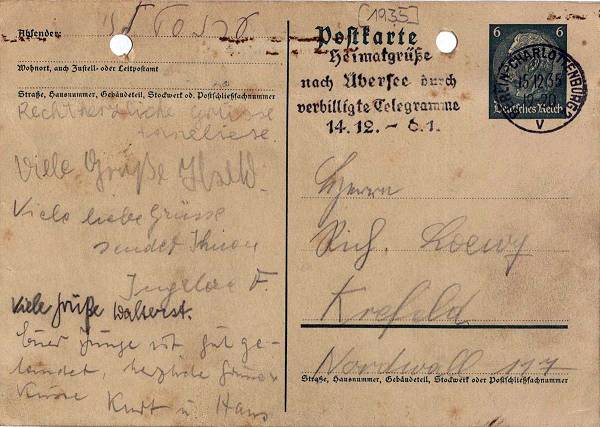 [1935]
Absender:
Wohnort, auch Zustell- oder Leitpostamt
Straße, Hausnummer, Gebäudeteil, Stockwerk od. Postschließfachnummer
Rechtherzliche Grüsse
Anneliese.
Viele Grüße
Viele liebe Grüsse
sendet Ihnen
Ingelore F.
Viele Grüße
Euer Junge ist gut ge-
landet, herzliche
Kurt u Hans
Postkarte
Heimatgrüße
nach Übersee durch
verbilligte Telegramme
14.12. - 6.1.
6 6
Deutsches Reich
BERLIN-CHARLOTTENBURG
15.12.35
V
Herrn
Rich. Loewy
Krefeld
Nordwall 117
Straße, Hausnummer, Gebäudeteil, Stockwerk oder Postschließfachnummer